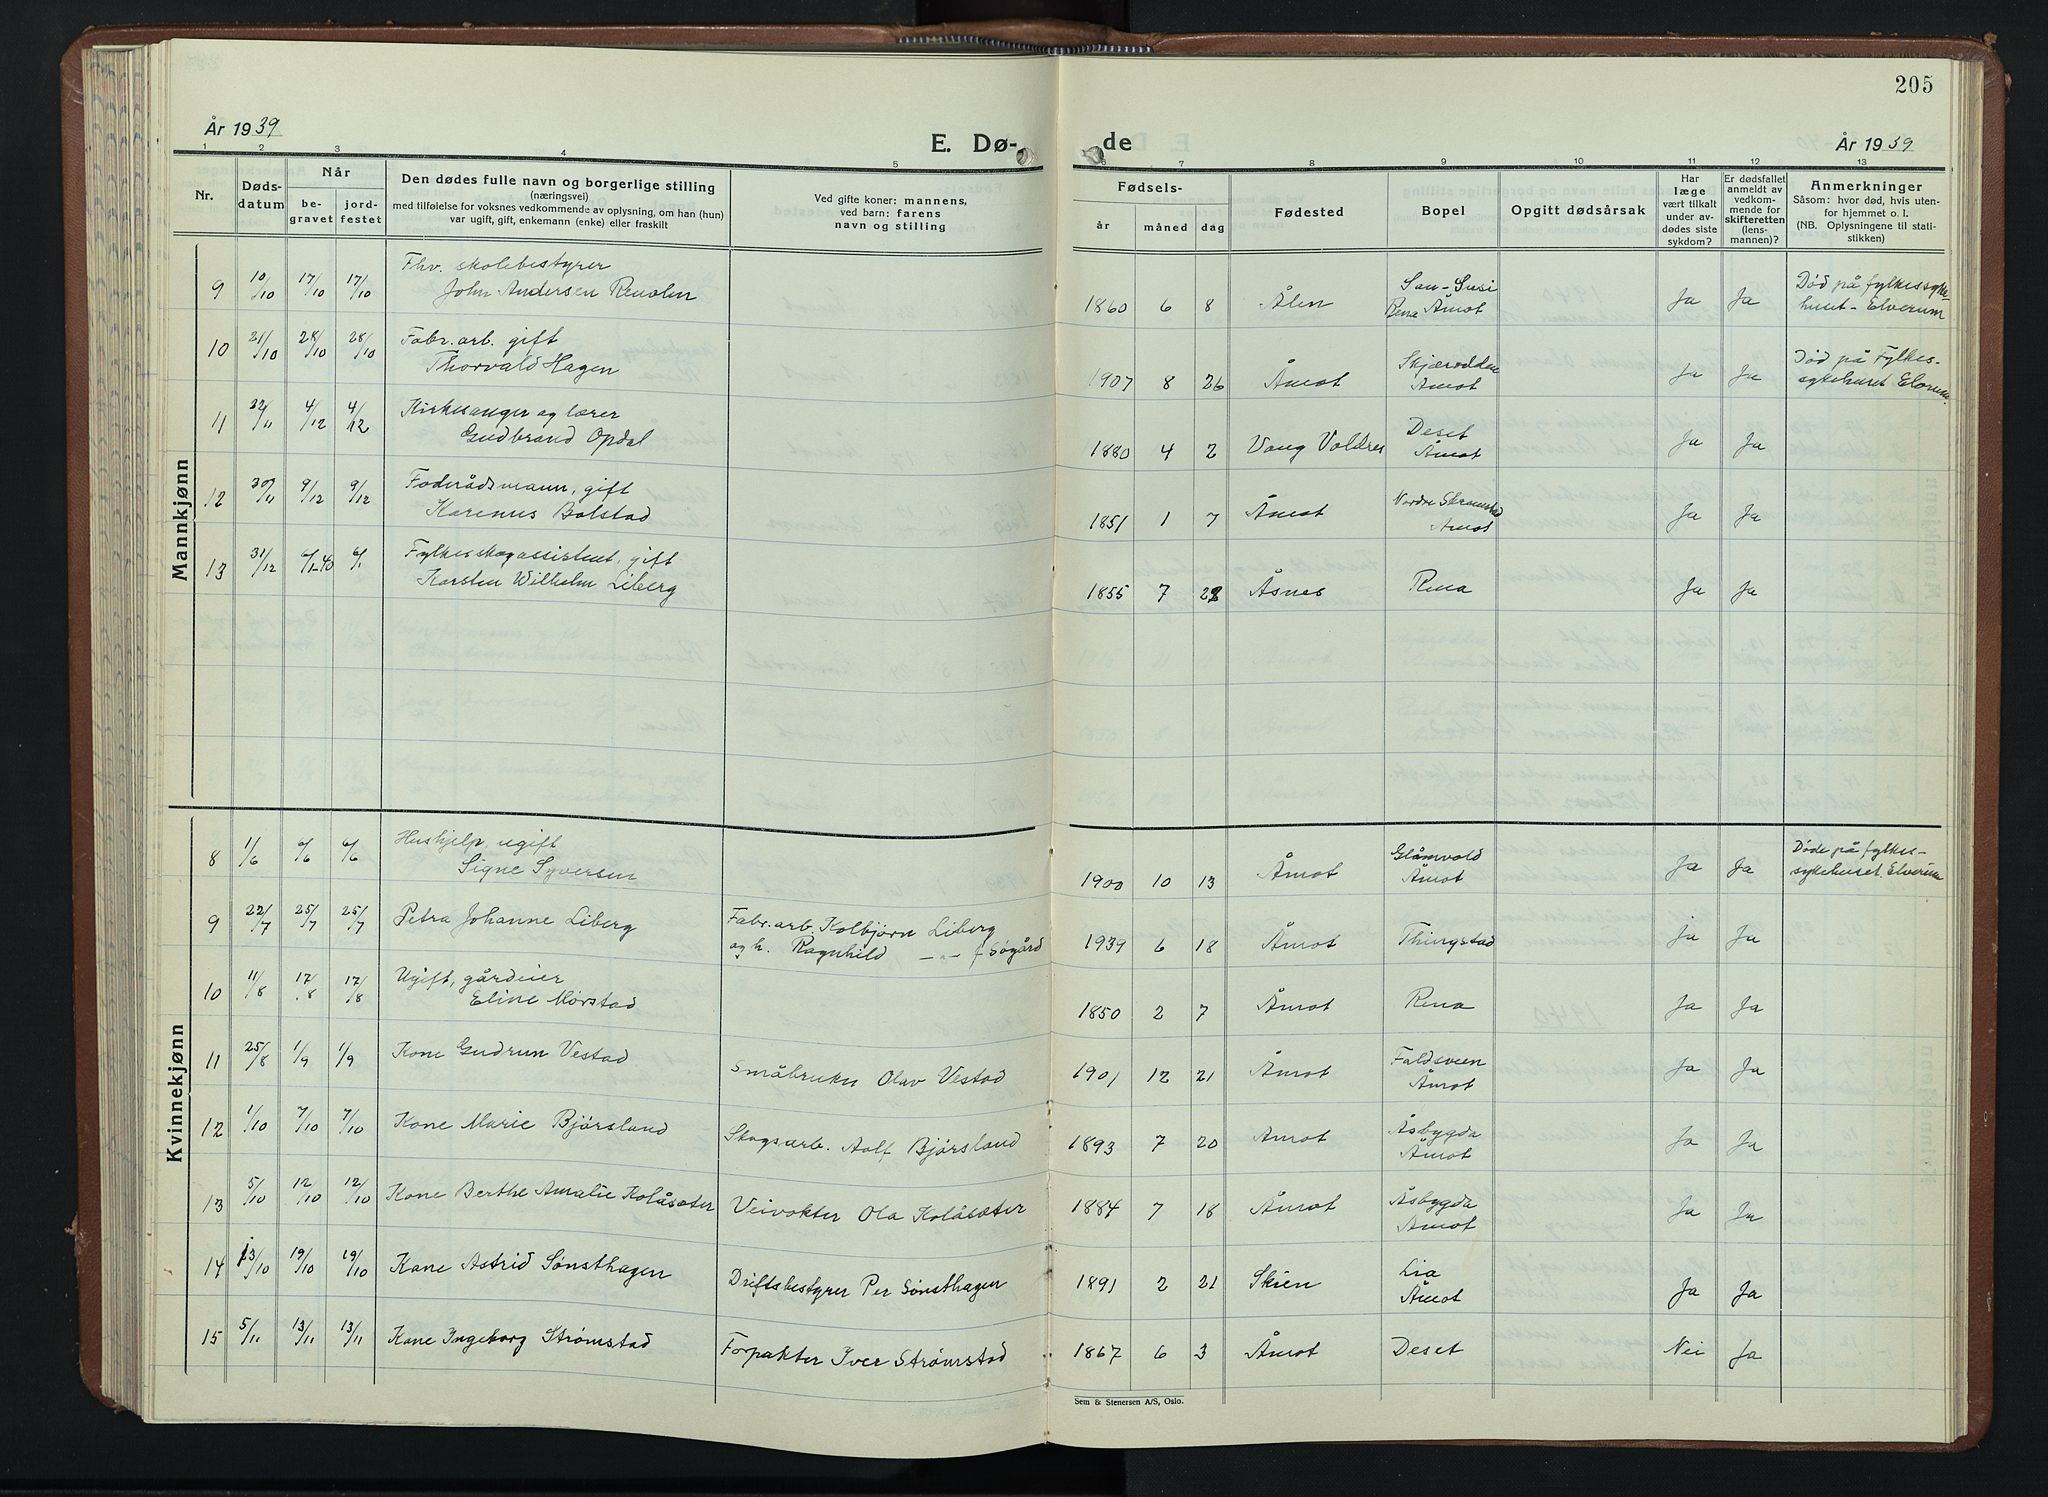 205
År 1939
E. Dø-
de
År 1939
1 2 3 4 5 6 7 8 9 10 11 12 13
Nr.
Døds-
datum
Når
be-
gravet
jord-
festet
Den dødes fulle navn og borgerlige stilling
(næringsvei)
med tilføielse for voksnes vedkommende av oplysning, om han (hun)
var ugift, gift, enkemann (enke) eller fraskilt
Ved gifte koner: mannens,
ved barn: farens
navn og stilling
Fødsels-
år måned dag
Fødested
Bopel
Opgitt dødsårsak
Har
læge
vært tilkalt
under av-
dødes siste
sykdom?
Er dødsfallet
anmeldt av
vedkom-
mende for
skifteretten
(lens-
mannen)?
Anmerkninger
Såsom: hvor død, hvis uten-
for hjemmet o. l.
(NB. Oplysningene til stati-
stikken)
Mannkjønn
9 10/10 17/10 17/10 Fhv. skolebestyrer
John Andersen Renolen
1860 6 8 Ålen San-Susi
Rena Åmot Ja Ja Død på fylkessyke-
huset - Elverum
10 21/10 28/10 28/10 Fabr. arb. gift
Thorvald Hagen
1907 8 26 Åmot Skjærodden
Åmot Ja Ja Død på Fylkes-
sykehuset Elverum.
11 22/11 4/12 4/12 Kirkesanger og lærer
Gudbrand Opdal
1880 4 2 Vang Valdres Deset
Åmot Ja Ja
12 30/11 9/12 9/12 Føderådsmann, gift
Karenus Bolstad
1851 1 7 Åmot Nordre Skramstad
Åmot Ja Ja
13 31/12 6/1-40 6/1 Fylkesskogassistent, gift
Karsten Wilhelm Liberg
1855 7 28 Åsnes Rena Ja Ja
Kvinnekjønn
8 1/6 6/6 6/6 Hushjelp, ugift
Signe Syversen
1900 10 13 Åmot Glåmvold
Åmot Ja Ja Døde på fylkes-
sykehuset. Elverum
9 22/7 25/7 25/7 Petra Johanne Liberg Fabr. arb. Kolbjørn Liberg
og h. Ragnhild —"— f Søgård
1939 6 18 Åmot Thingstad ja Ja
10 11/8 17/8 17/8 Ugift, gårdeier
Eline Mørstad
1850 2 7 Åmot Rena Ja Ja
11 25/8 1/9 1/9 Kone Gudrun Vestad Småbruker Olav Vestad
1901 12 21 Åmot Faldsveen
Åmot Ja Ja
12 1/10 7/10 7/10 Kone Marie Bjørsland Skogsarb. Aolf Bjørsland
1893 7 20 Åmot Åsbygda
Åmot Ja Ja
13 5/10 12/10 12/10 Kone Berthe Amalie Kolåsæter Veivokter Ola Kolåsæter
1884 7 18 Åmot Åsbygda
Åmot Ja Ja
14 13/10 19/10 19/10 Kone Astrid Sønsthagen Driftsbestyrer Per Sønsthagen
1891 2 21 Skien Lia
Åmot Ja Ja
15 5/11 13/11 13/11 Kone Ingeborg Strømstad Forpakter Iver Strømstad
1867 6 3 Åmot Deset Nei Ja
Sem & Stenersen A/S, Oslo.